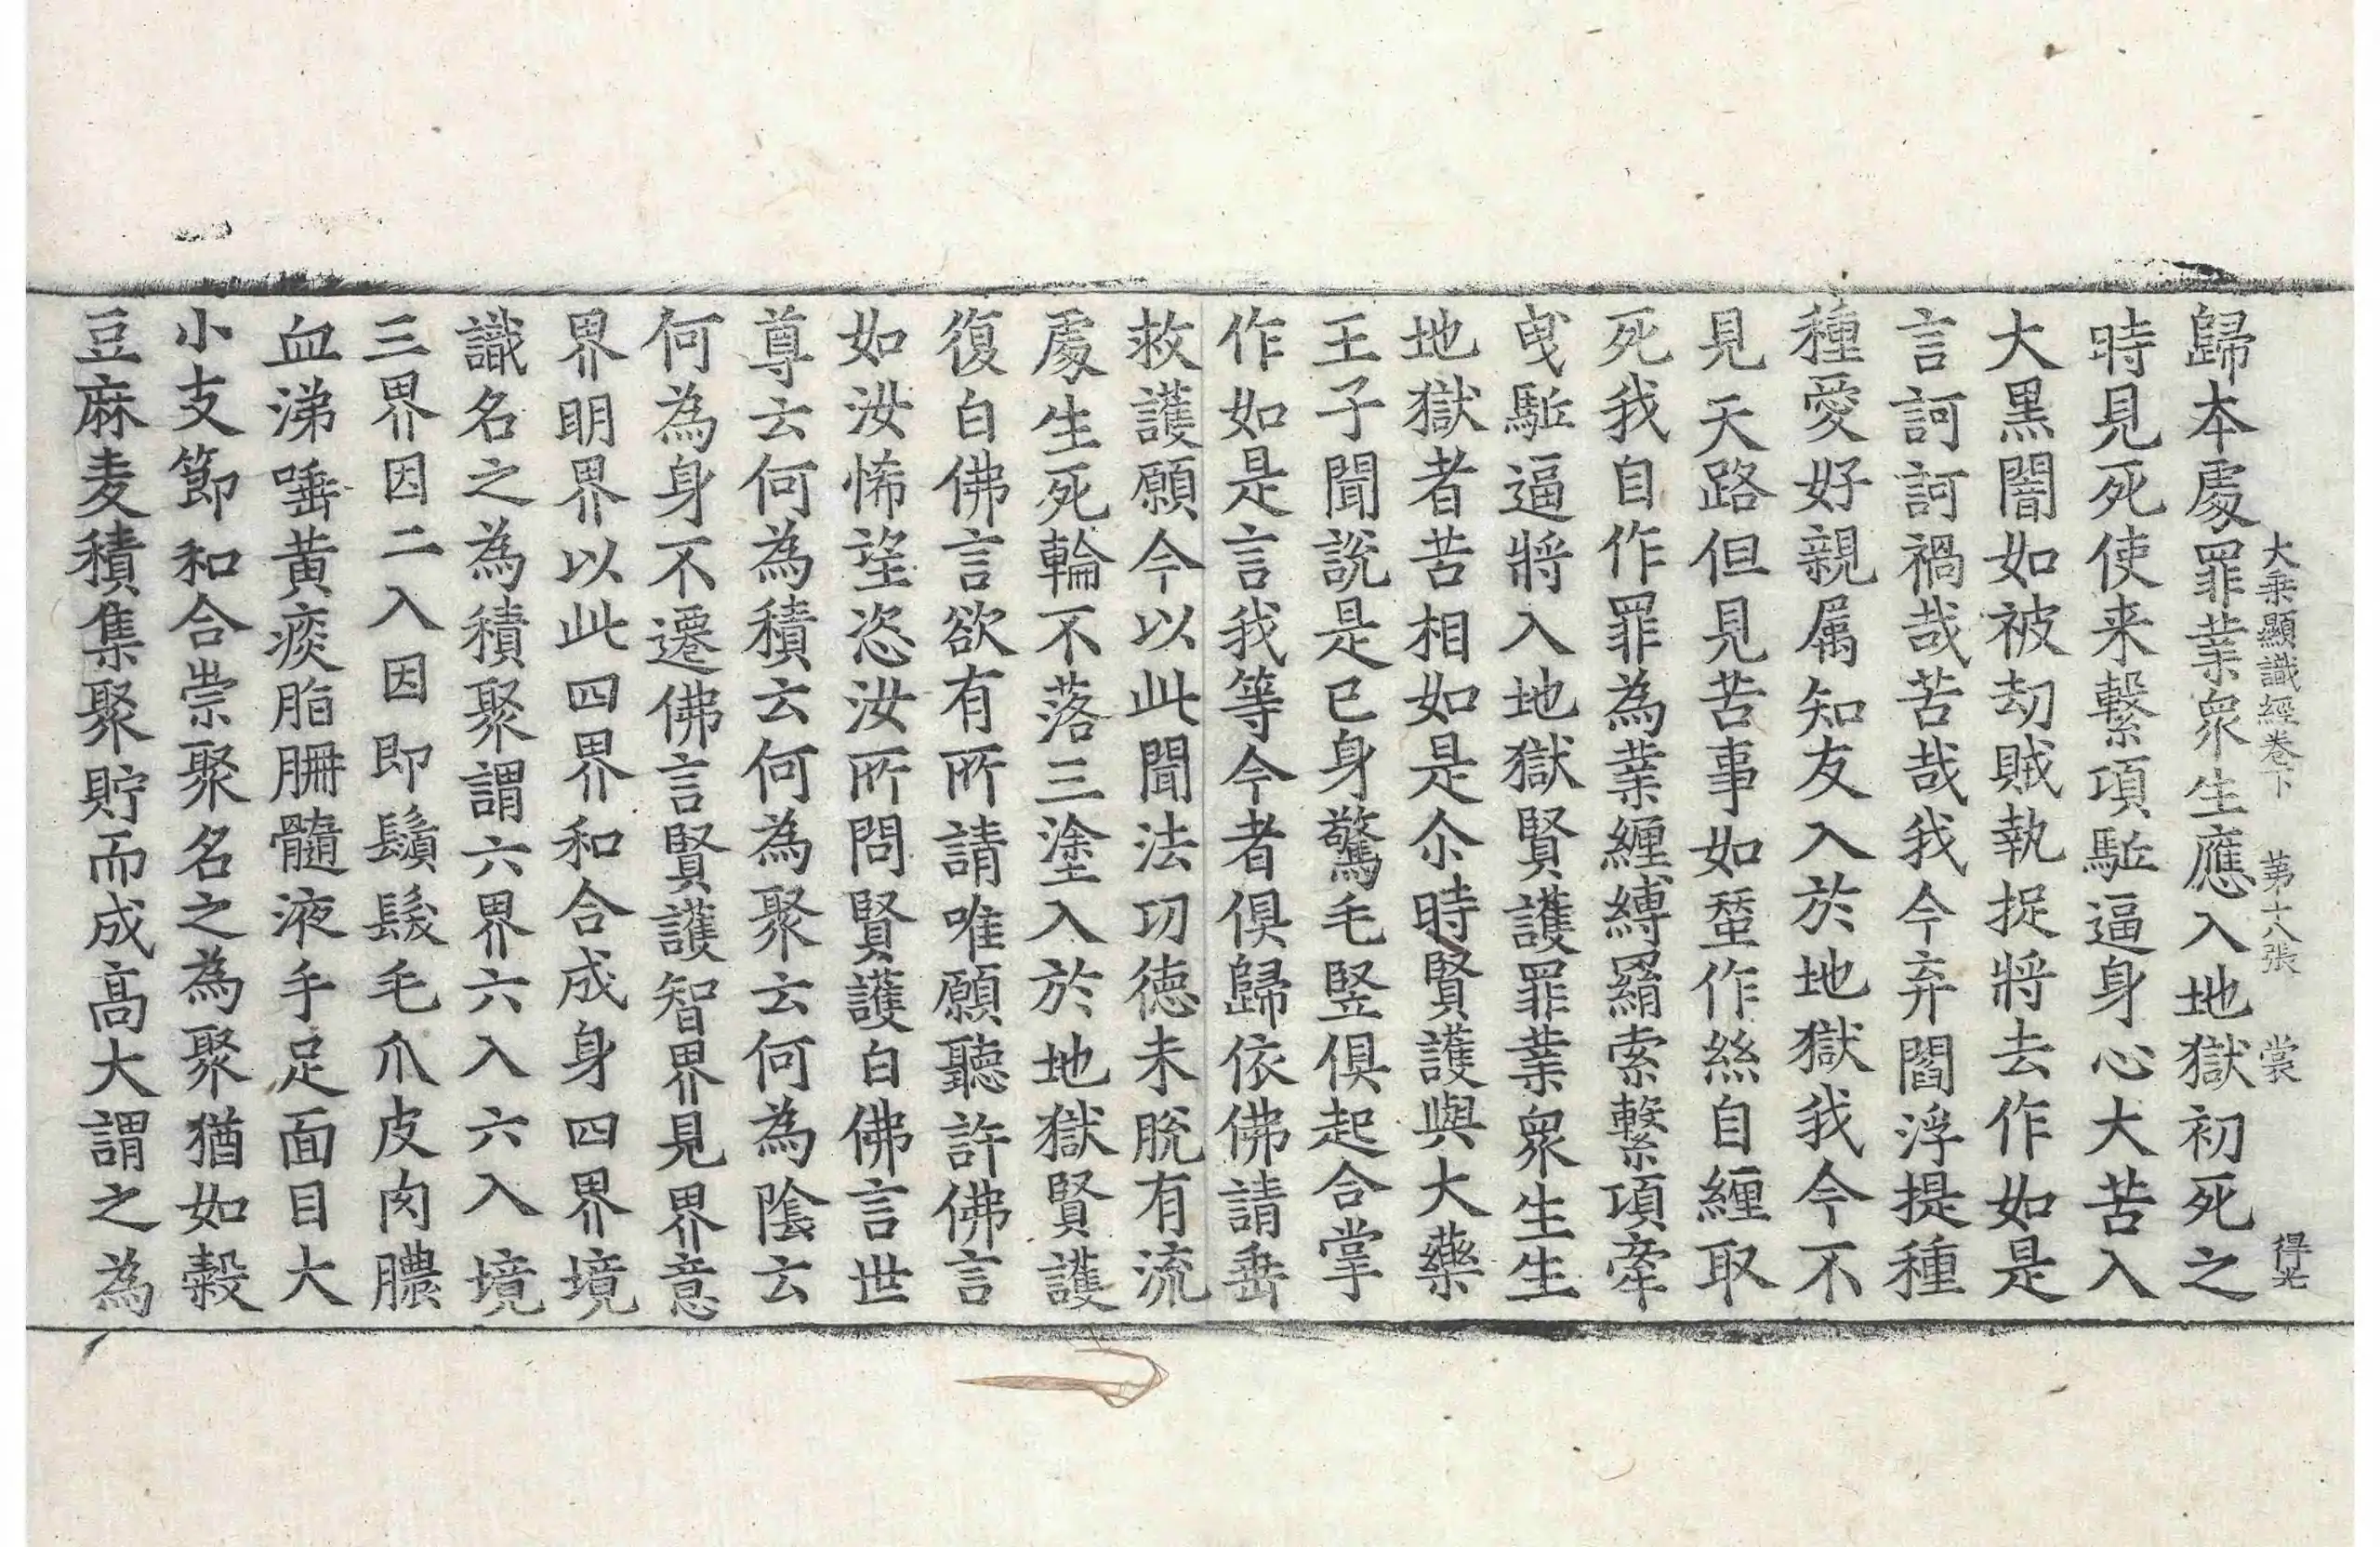 大乗顯識經卷下　第十八張　裳　得光
歸本處罪業衆生應入地獄初死之
時見死使来繫項駈逼身心大苦入
大黒闇如被劫賊執捉將去作如是
言訶訶禍哉苦哉我今弃閻浮提種
種愛好親属知友入於地獄我今不
見天路但見苦事如蚕作絲自纏取
死我自作罪為業纏縛羂索繫項牽
曳駈逼將入地獄賢護罪業衆生生
地獄者苦相如是尒時賢護與大藥
王子聞說是已身驚毛竪俱起合掌
作如是言我等今者俱歸依佛請垂
救護願今以此聞法功徳未脫有流
處生死輪不落三塗入於地獄賢護
復白佛言欲有所請唯願聽許佛言
如汝悕望恣汝所問賢護白佛言世
尊云何為積云何為聚云何為陰云
何為身不遷佛言賢護智界見界意
界明界以此四界和合成身四界境
識名之為積聚謂六界六入六入境
三界因二入因即鬚髮毛爪皮肉膿
血涕唾黄痰脂𦙱髓液手足面目大
小支節和合崇聚名之為聚猶如穀
豆麻麦積集聚貯而成高大謂之為